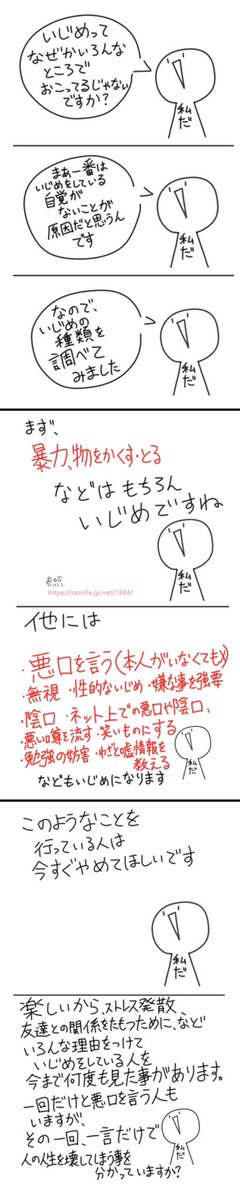 いじめって
なぜかいろんな
ところで
おこってるじゃない
ですか？
私
だ
まあ一番は
いじめをしている
自覚が
ないことが
原因だと思うん
です
私
だ
なので、
いじめの
種類を
調べて
みました
私
だ
まず、
暴力、物をかくす・とる
などはもちろん
いじめですね
私
だ
参照
https://candle.jp.net/1384/
他には
・悪口を言う(本人がいなくても)
・無視 ・性的ないじめ ・嫌な事を強要
・陰口 ・ネット上での悪口や陰口、
・悪い噂を流す・笑いものにする
・勉強の妨害 ・わざと嘘情報を
教える
などもいじめになります
私
だ
このようなことを
行っている人は
今すぐやめてほしいです
私
だ
楽しいから、ストレス発散、
友達との関係をたもつために、など
いろんな理由をつけて
いじめをしている人を
今まで何度も見た事があります。
一回だけと悪口を言う人も
いますが、
その一回、一言だけで
人の人生を壊してしまう事を
分かっていますか？
私
だ